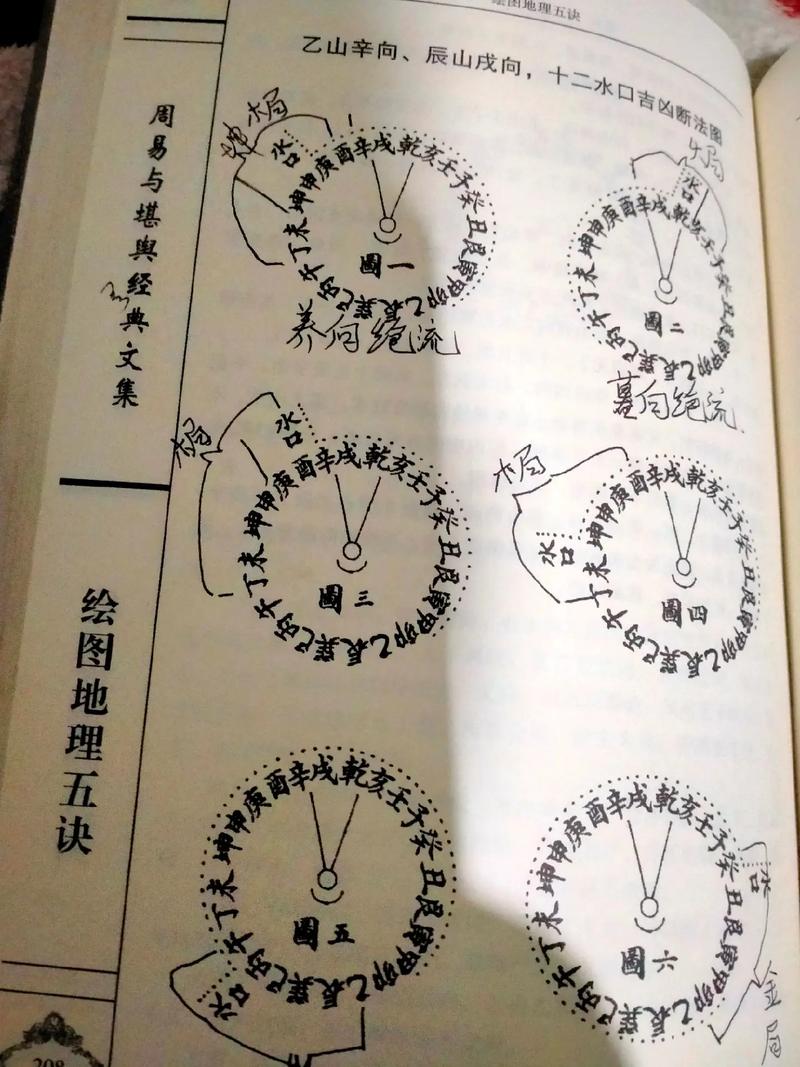 绘图地理五诀
乙山辛向、辰山戌向，十二水口吉凶断法图
周易与堪舆经典文集
绘图地理五诀
208
水口
坤申庚酉辛戌乾亥壬子癸丑艮寅甲卯乙辰巽巳丙午丁未
圖一
养向绝流
水口
坤申庚酉辛戌乾亥壬子癸丑艮寅甲卯乙辰巽巳丙午丁未
圖二
墓向绝流
木局
水口
坤申庚酉辛戌乾亥壬子癸丑艮寅甲卯乙辰巽巳丙午丁未
圖三
木局
水口
坤申庚酉辛戌乾亥壬子癸丑艮寅甲卯乙辰巽巳丙午丁未
圖四
水口
坤申庚酉辛戌乾亥壬子癸丑艮寅甲卯乙辰巽巳丙午丁未
圖五
水口
坤申庚酉辛戌乾亥壬子癸丑艮寅甲卯乙辰巽巳丙午丁未
圖六
金局